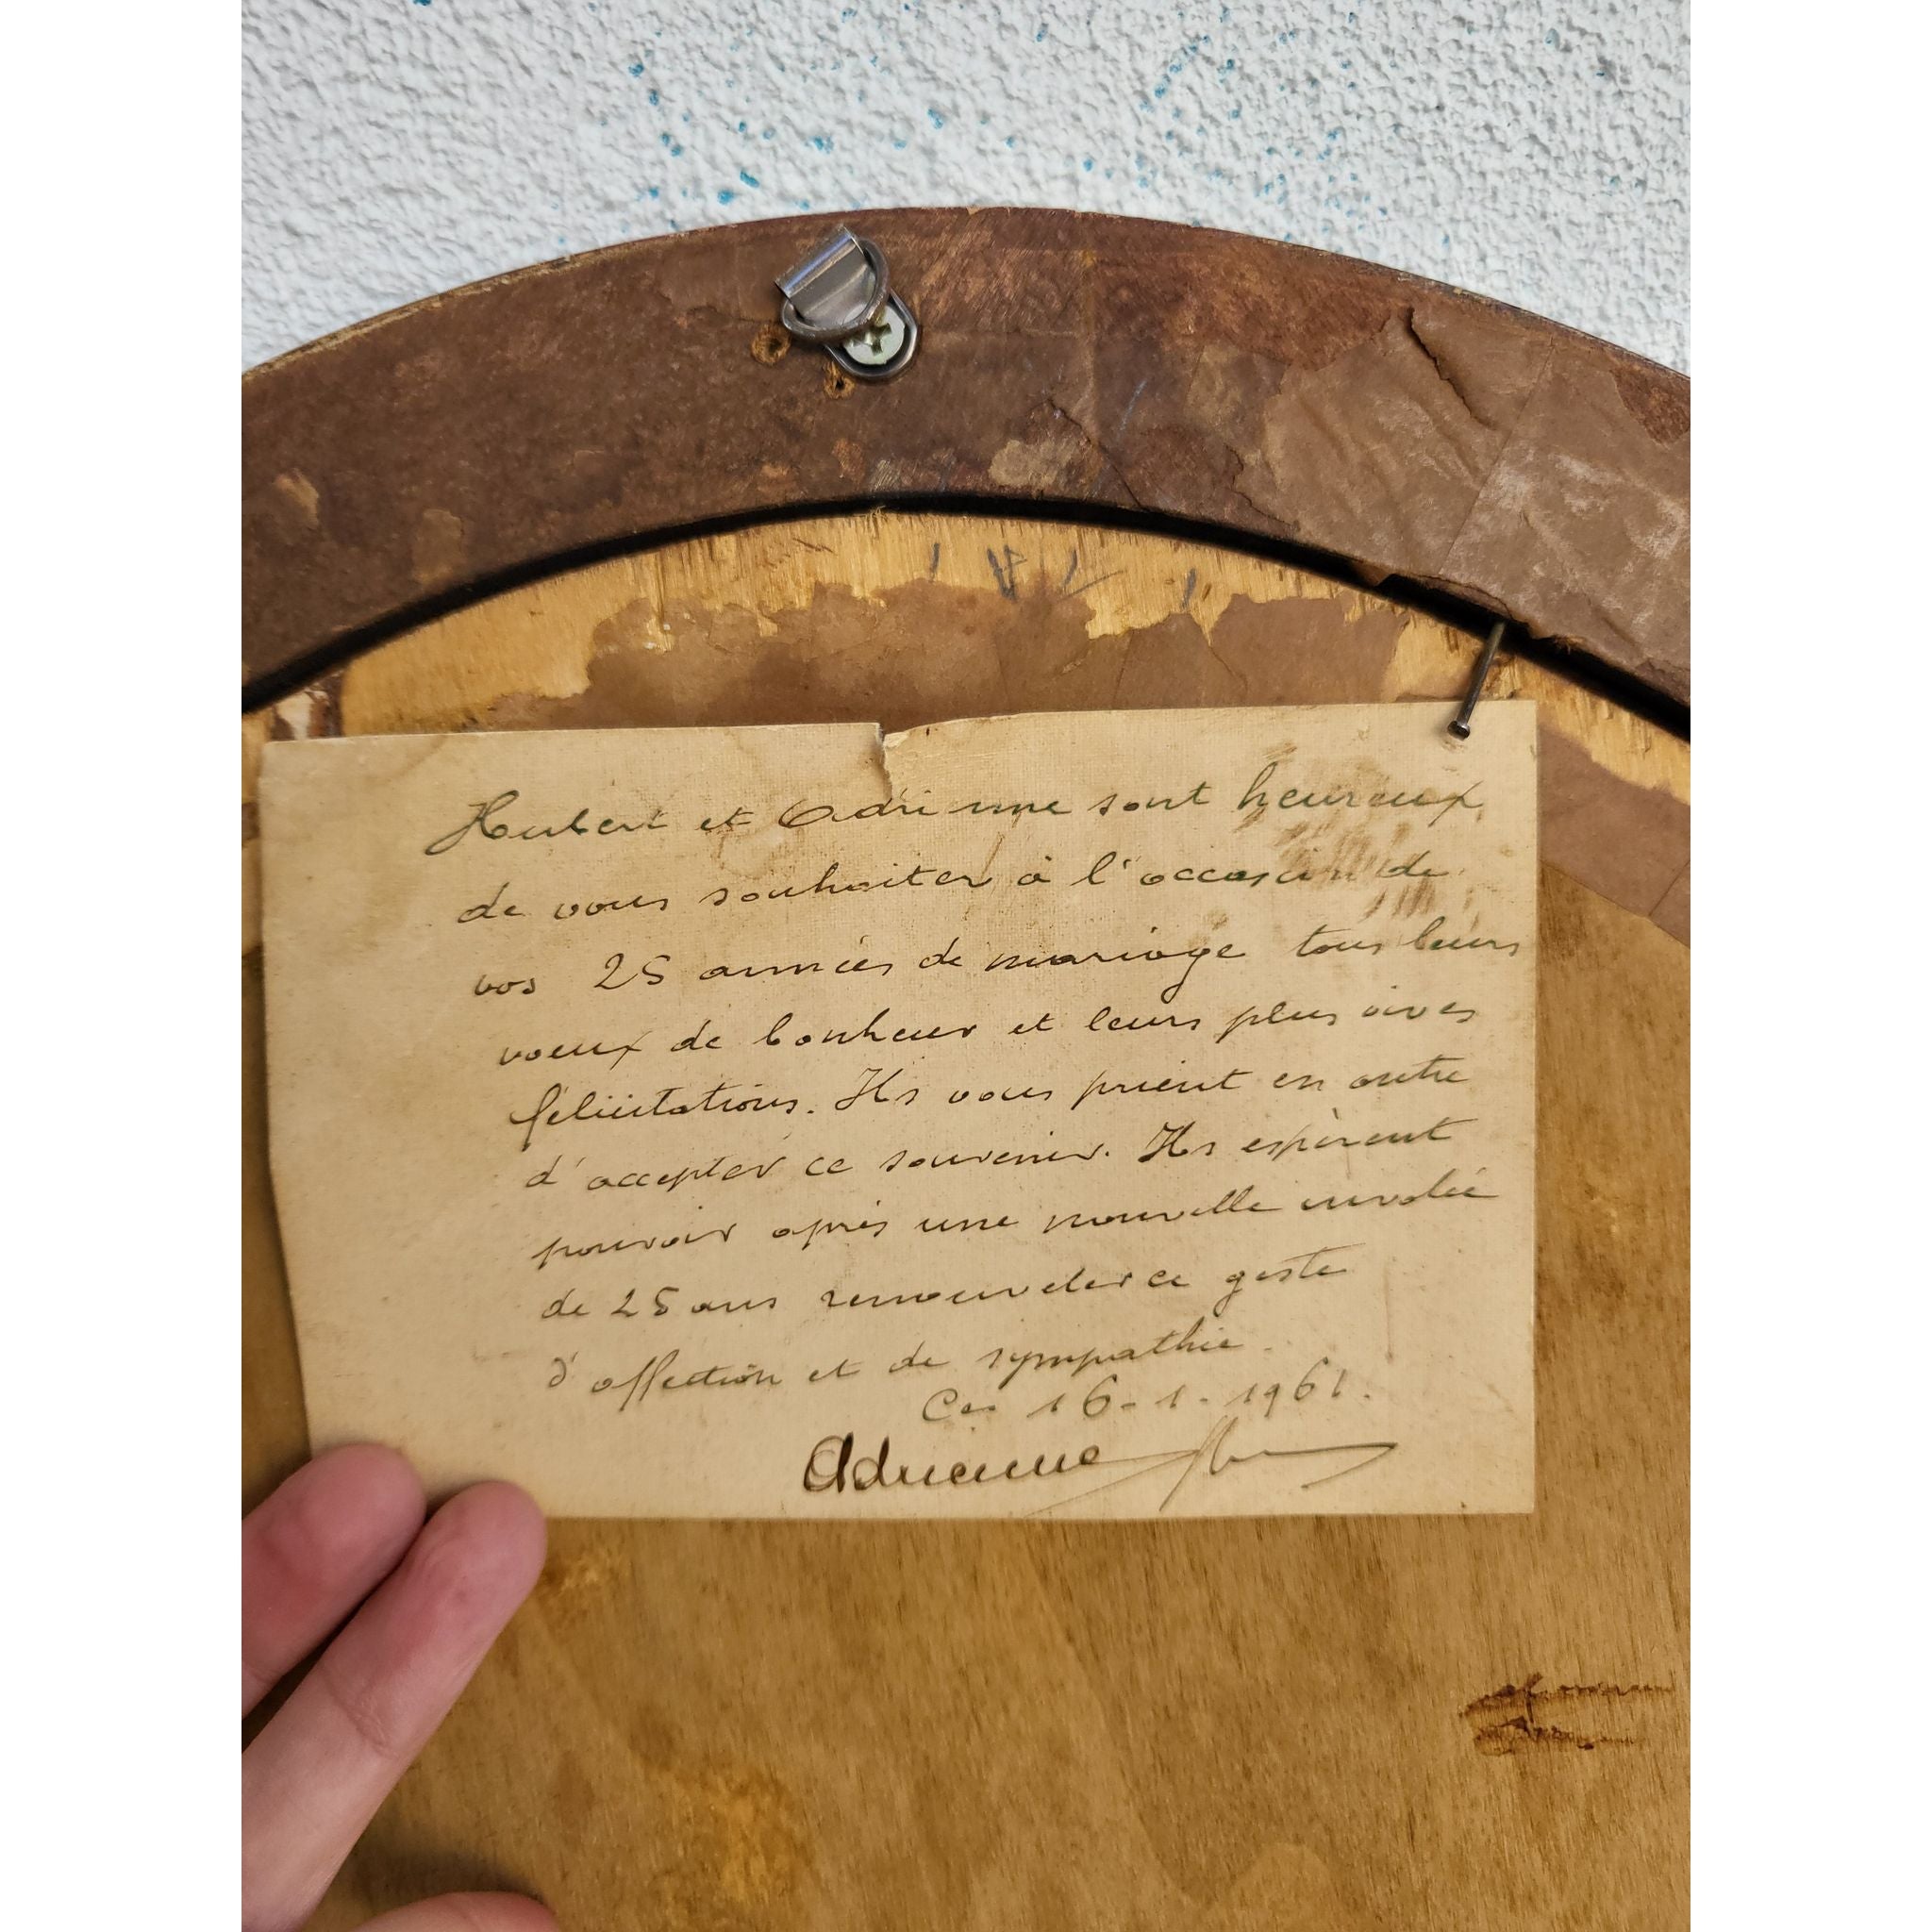 Hubert et Adrienne sont heureux
de vous souhaiter à l'occasion de
vos 25 années de mariage tous leurs
voeux de bonheur et leurs plus vives
félicitations. Ils vous prient en outre
d'accepter ce souvenir. Ils espèrent
pouvoir après une nouvelle envolée
de 25 ans renouveler ce geste
d'affection et de sympathie.
Ce 16-1-1961.
Adrienne